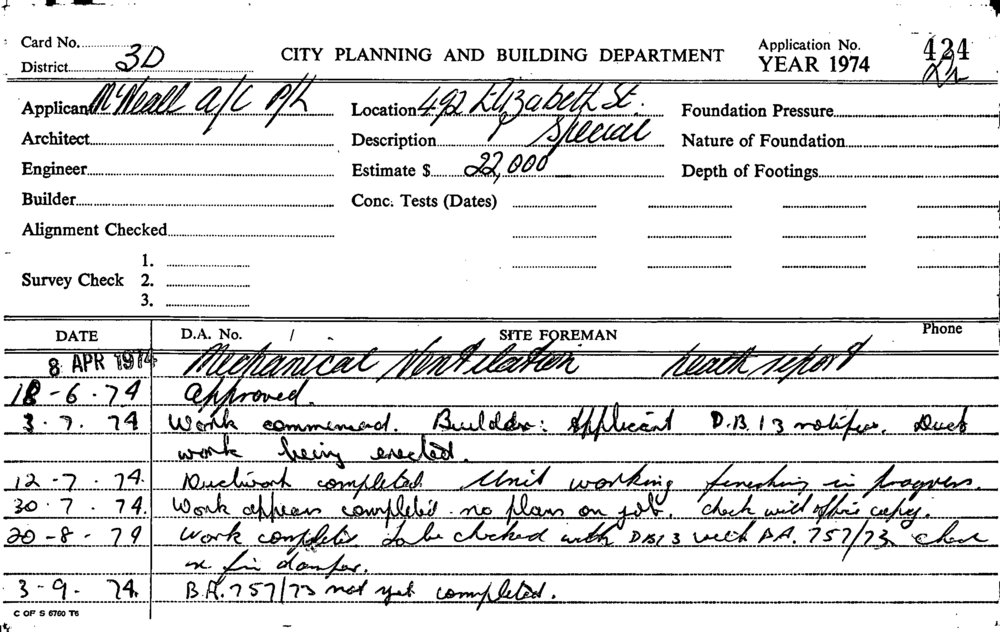 Card No.
District 3D
CITY PLANNING AND BUILDING DEPARTMENT
Application No. 424
YEAR 1974
Applicant McNeall A/C P/L
Location 492 Elizabeth St.
Foundation Pressure
Architect
Description Special
Nature of Foundation
Engineer
Estimate $ 22,000
Depth of Footings
Builder
Conc. Tests (Dates)
Alignment Checked
Survey Check
1.
2.
3.
DATE
D.A. No. /
SITE FOREMAN
Phone
8 APR 1974 Mechanical Ventilation heath report
18-6.74 Approved.
3.7.74 Work commenced. Builder: Applicant D.B.13 notified. Duct
work being erected.
12-7.74. Ductwork completed Unit working finishing in progress.
30.7.74. Work appears completed no plans on job. check with office copy.
20-8-74 Work complete. To be checked with DB13 with B.A. 757/73 check
fire damper.
3-9.74. B.A. 757/73 not yet completed.
C OF S 6760 T6